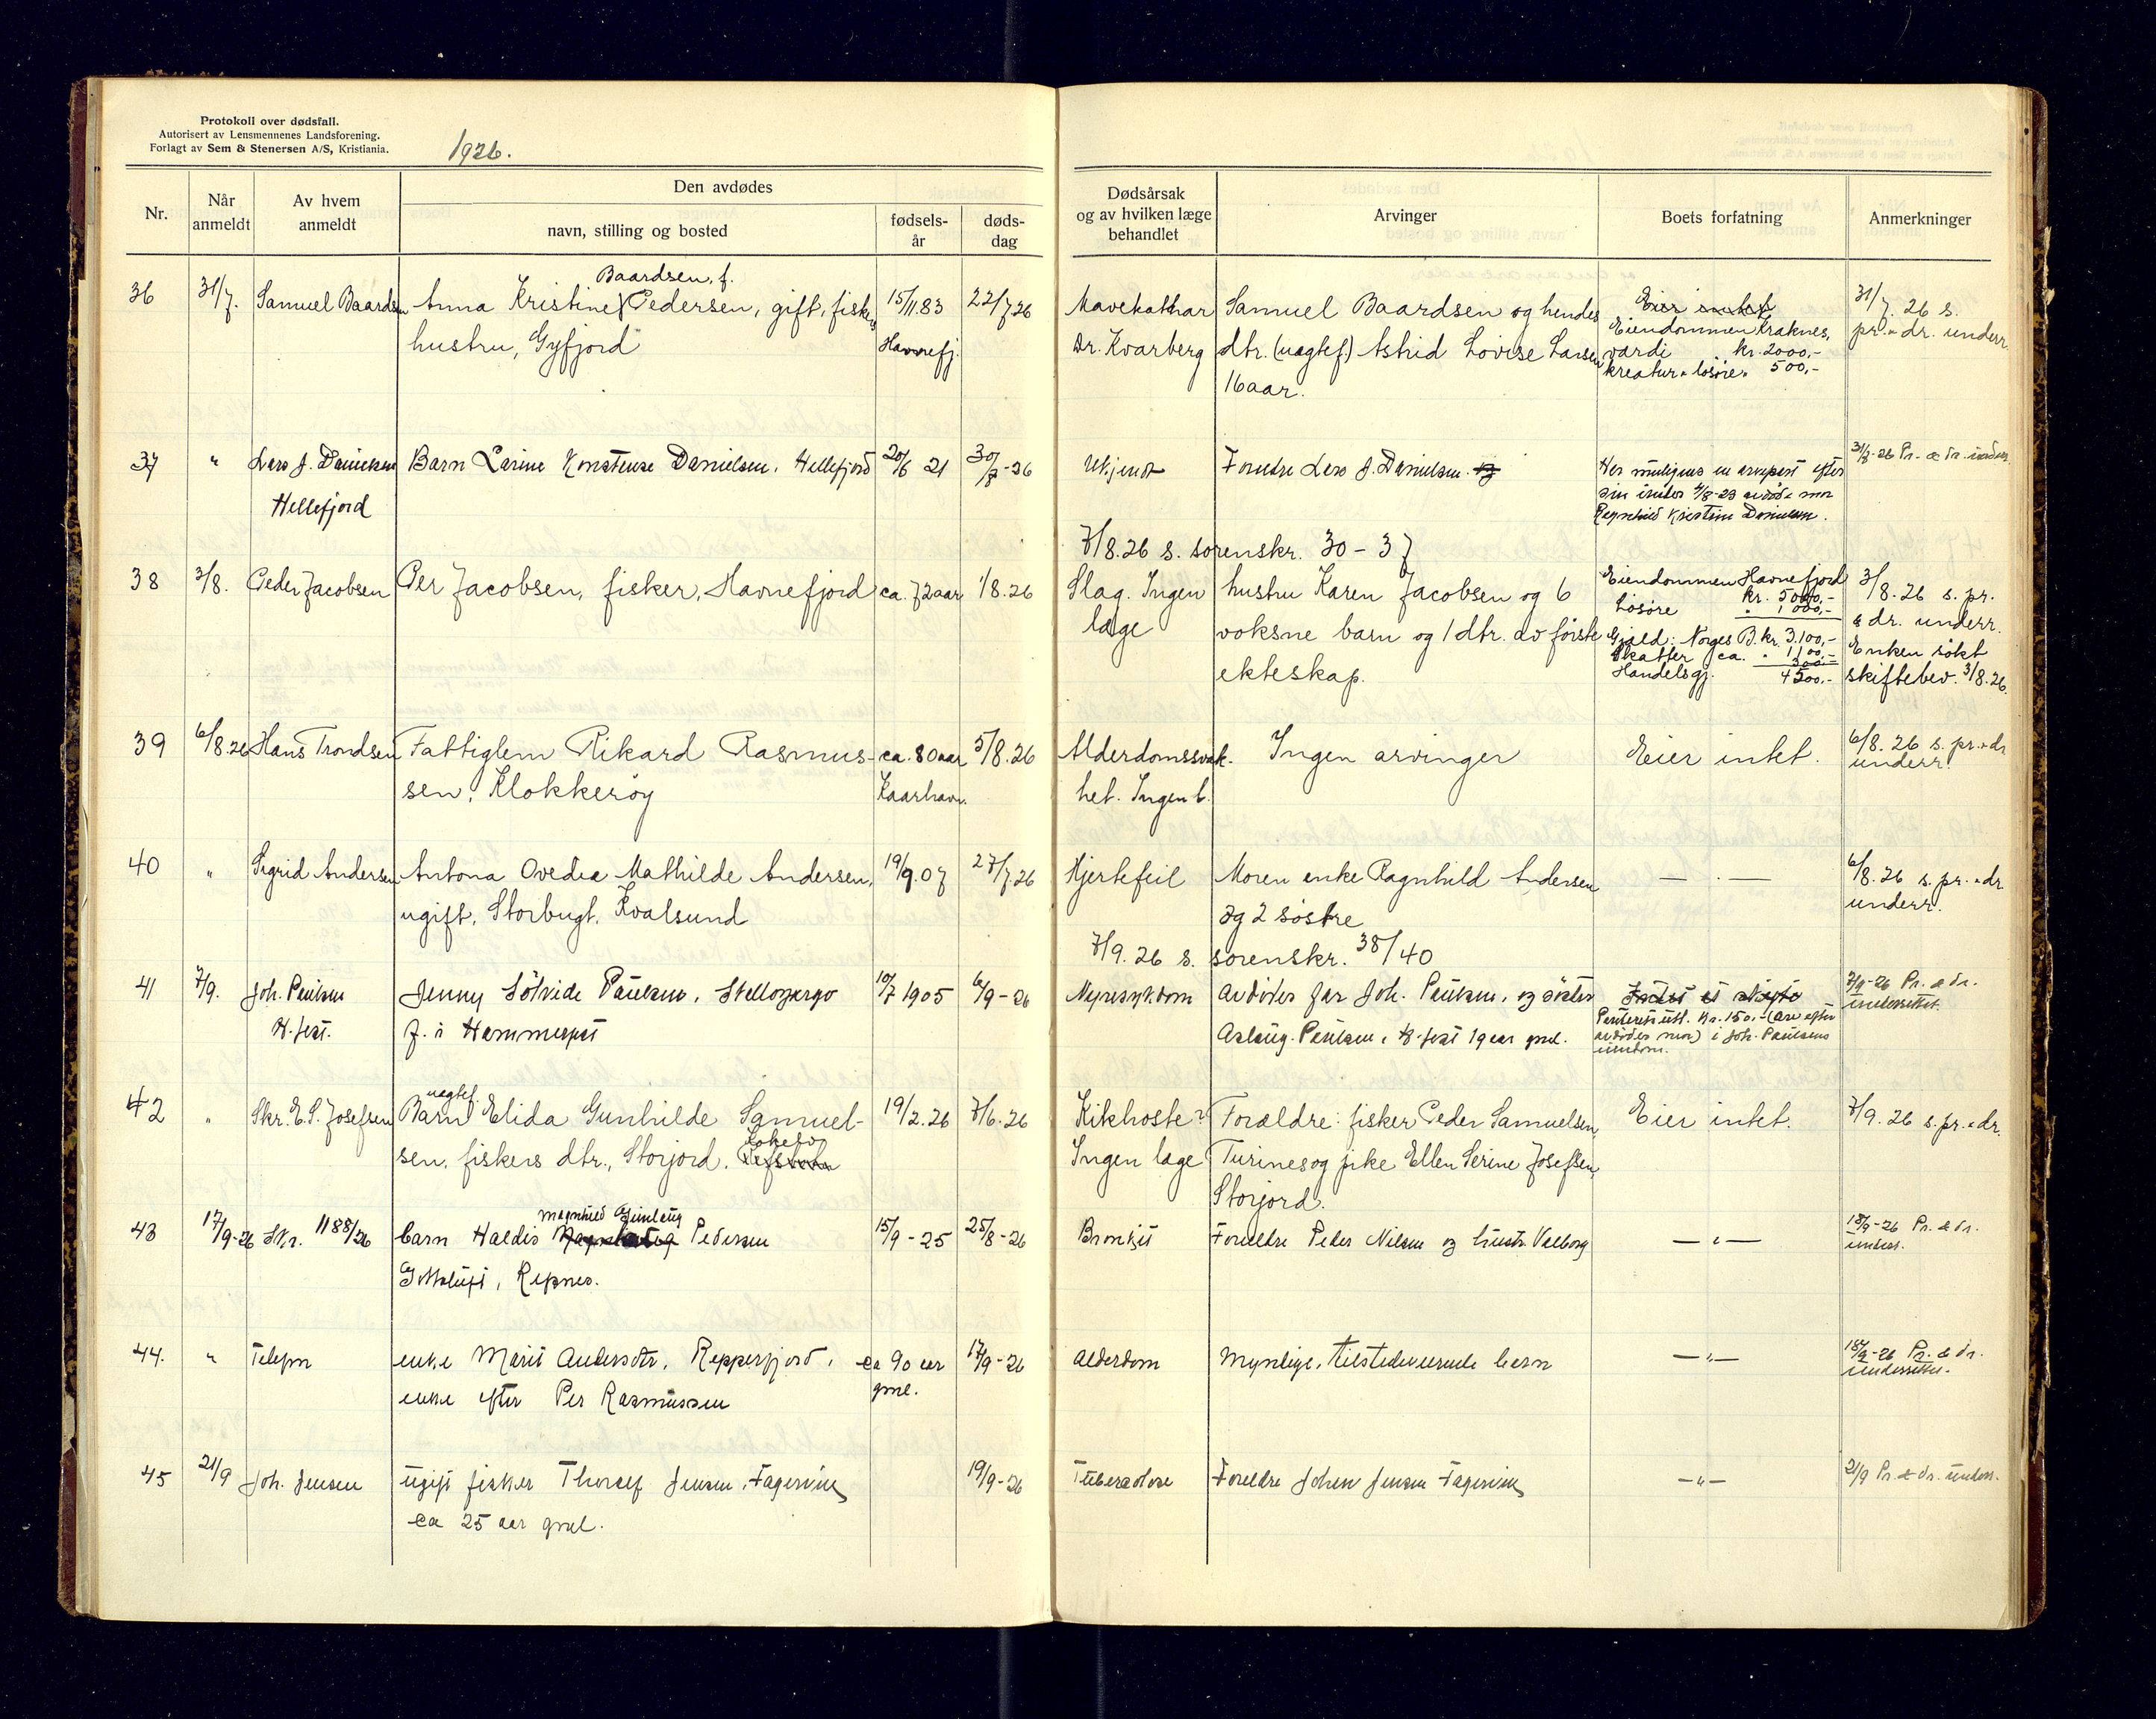 Protokoll over dødsfall.
Autorisert av Lensmennenes Landsforening.
Forlagt av Sem & Stenersen A/S, Kristiania.
1926.
Nr.
Når anmeldt
Av hvem anmeldt
Den avdødes
navn, stilling og bosted
fødsels-år
døds-dag
Dødsårsak og av hvilken læge behandlet
Arvinger
Boets forfatning
Anmerkninger
36 31/7. Samuel Baardsen
Baardsen, f.
Anna Kristine Pedersen, gift, fiskers
hustru, Gyfjord
15/11.83
Havnefj.
22/7 26
Mavekathar
Dr. Kvarberg
Samuel Baardsen og hendes
dtr. (uægtef.) Astrid Lovise Larsen
16 aar.
Eier intet
Eiendommen Kraknes,
værdi kr. 2000,-
kreatur & løsøre " 500,-
31/7. 26 s.
pr. & dr. underr.
37 " Lars J. Danielsen
Hellefjord
Barn Larine Konstense Danielsen, Hellefjord
20/6 21
30/7-26
Ukjendt
Forældre Lars J. Danielsen
Har muligens en arvepart efter
sin under 4/8-23 avdøde mor
Ragnhild Kristine Danielsen.
31/8-26 Pr. & dr. underr.
7/8.26 s. sorenskr. 30 - 37
38 3/8. Peder Jacobsen
Per Jacobsen, fisker, Havnefjord
ca. 72 aar
1/8.26
Slag. Ingen
læge
hustru Karen Jacobsen og 6
voksne barn og 1 dtr. av første
ekteskap.
Eiendommen Havnefjord
kr. 5000,-
Løsøre " 1000,-
Gjæld: Norges B. kr. 3.100,-
Skatter ca. " 1100,-
Handelsgj. 300,-
4500,-
3/8.26 s. pr.
& dr. underr.
Enken søkt
skiftebev. 3/8.26.
39 6/8.26 Hans Trondsen
Fattiglem Rikard Rasmus-
sen, Klokkerøy
ca. 80 aar
Kaarhavn.
5/8.26
Alderdomssvak-
het. Ingen l.
Ingen arvinger
Eier intet.
6/8.26 s. pr. & dr
underr.
40 " Sigrid Andersen
Antona Ovedia Mathilde Andersen,
ugift, Storbugt, Kvalsund
19/9.07
27/7.26
Hjertefeil
Moren enke Ragnhild Andersen
og 2 søstre
— " —
6/8.26 s. pr. & dr
underr.
7/9.26 s. sorenskr. 38/40
41 7/9. Joh. Paulsen
H.fest.
Jenny Sølvide Paulsen,
f. i Hammerfest
10/7 1905
6/9-26
Nyresykdom
avdødes far Joh. Paulsen, og søster
Aslaug Paulsen, H.fest 19 aar gml.
kr. 150,- (arv efter
avdødes mor) i Joh. Paulsens
7/9-26 Pr. & dr.
underrettet.
42 " Skr. E. S. Josefsen
uægtef.
Barn Elida Gunhilde Samuel-
sen, fiskers dtr., Storjord,
19/2.26
7/6.26
Kikhoste?
Ingen læge
Forældre: fisker Peder Samuelsen,
Turines og pike Ellen Serine Josefsen,
Storjord.
Eier intet.
7/9.26 s. pr. & dr.
43 17/9-26 Skr. 1188/26
Magnhild Gunlaug
barn Haldis Pedersen
Repnes.
15/9-25
25/8-26
Bronkit
Forældre Peder Nilsen og hustr. Valborg
— " —
18/9-26 Pr. & dr.
underr.
44. " Telefon
enke Marit Andersdtr, Repperfjord,
enke efter Per Rasmussen
ca 90 aar
gml.
17/9-26
Alderdom
Myndige, tilstedeværende barn
— " —
18/9-26 Pr. & dr.
underrettet.
45 21/9 Joh. Jensen
ugift fisker Thoralf Jensen, Fagervik
ca 25 aar gml.
19/9-26
Tuberkolose
Forældre Johan Jensen Fagervik
— " —
21/9 Pr. & dr. underr.